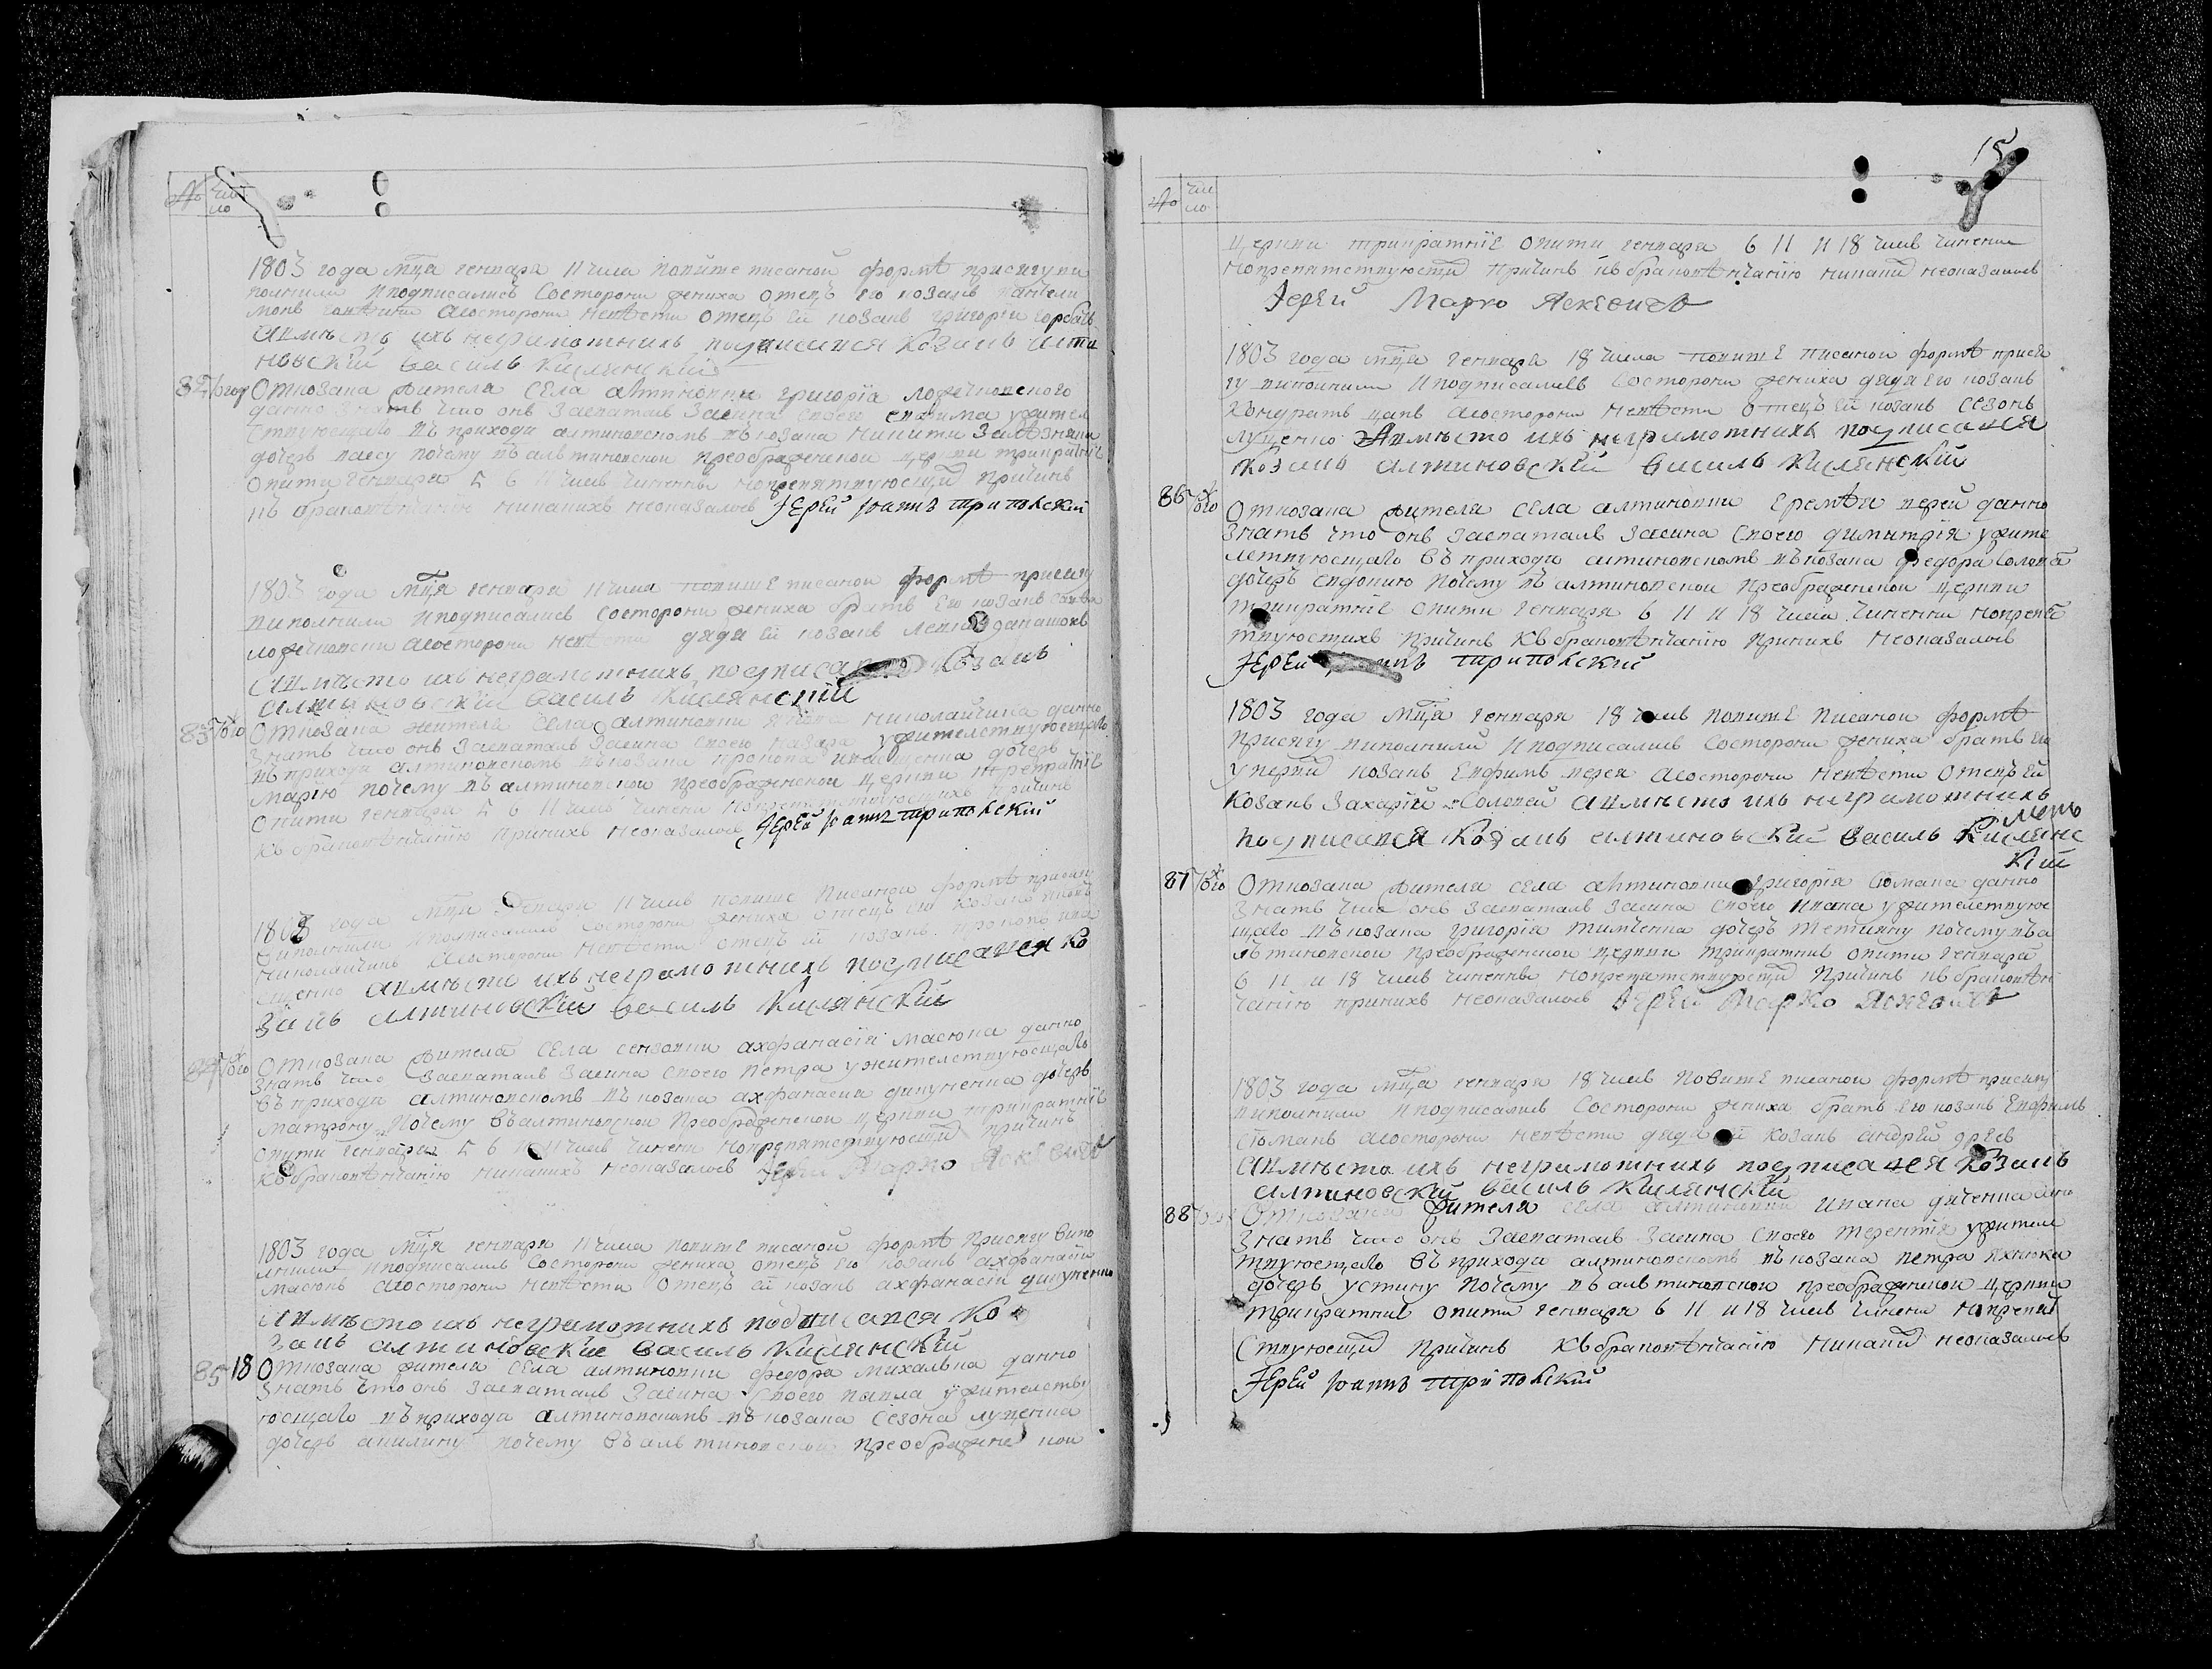 № чис
ло
1803 года мца генваря 11 числа повише писаной форме присягу ви
полнили и подписались состорони жениха отецъ его козакъ пантели
монъ аосторони невести отецъ ей козакъ григорій горбачъ
авместо ихъ неграмотнихъ подписался козакъ алти
новский василь кислянский
82 того
Откозака жителя села алтиновки григорія ложечковского
данно знать что онъ засваталъ засина своего евфима ужител
ствующаго въ приходи алтиновскомъ въ козака никити
дочерь почему въ алтиновской преображенской церкви трикратніе
опити генваря 5 6 11 числъ чиненни нопрепятствующихъ причинъ
къ браковенчанію никакихъ неоказалось Іерей Іоаннъ триповский
1803 года мца генваря 11 числа повише писаной форме присягу
виполнили и подписались состорони жениха братъ его козакъ савва
ложечковски аосторони невести дядя ей козакъ
авместо ихъ неграмотнихъ подписался козакъ
алтиновский василь кислянский
83 того
Откозака жителя села алтиновки николайчика данно
знать что онъ засваталъ засина своего назара ужителствующаго
въ приходи алтиновскомъ въ козака прокопа иващенка дочерь
марію почему въ алтиновской преображенской церкви трикратніе
опити генваря 5 6 11 числъ чинени нопрепятствующихъ причинъ
къ браковенчанію принихъ неоказалось Іерей Іоаннъ триповский
1803 года мца генваря 11 числъ повише писаной форме присягу
виполнили и подписались состорони жениха отецъ его козакъ
николайчикъ аосторони невести отецъ ей козакъ прокопъ ива
щенко авместо ихъ неграмотнихъ подписался ко
закъ алтиновский василь кислянский
84 того
Откозака жителя села сензовки ахфанасія масюка данно
знать что засваталъ засина своего петра ужителствующаго
въ прихода алтиновскомъ въ козака ахфанасия дикуненка дочерь
матрону почему въ алтиновской преображенской церкви трикратніе
опити генваря 5 6 11 числъ чинени нопрепятствующихъ причинъ
къ браковенчанію никакихъ неоказалось Іерей Марко Яскевичъ
1803 года мца генваря 11 числа повише писаной форме присягу випо
лнили и подписались состорони жениха отецъ его козакъ ахфанасій
масюкъ аосторони невести отецъ ей козакъ ахфанасій дикуненко
авместо ихъ неграмотнихъ подписался ко
закъ алтиновские василь кислянский
85 18
Откозака жителя села алтиновки федора михалька данно
знать что онъ засваталъ засина своего павла ужителству
ющаго въ прихода алтиновскомъ въ козака сезона луценка
дочерь акилину почему въ алтиновской преображенской
15
№ чис
ло
церкви трикратніе опити генваря 6 11 и 18 числъ чиненни
нопрепятствующихъ причинъ къ браковенчанію никакихъ неоказалось
Іерей Марко Яскевичъ
1803 года мца генваря 18 числа повише писаной форме прися
гу виполнили и подписались состорони жениха дядя его козакъ
кондратъ цапъ аосторони невести отецъ ей козакъ сезонъ
луценко авместо ихъ неграмотнихъ подписался
козакъ алтиновский василь кислянский
86 того
Откозака жителя села алтиновки еремея перей данно
знать что онъ засваталъ засина своего димитрія ужите
лствующаго въ прихода алтиновскомъ въ козака федора соловя
дочерь евдокию почему въ алтиновской преображенской церкви
трикратніе опити генваря 6 11 и 18 числа чиненни нопрепя
твуюстихъ причинъ къ браковенчанію принихъ неоказалось
Іерей Іоаннъ триповский
1803 года мца генваря 18 числъ повише писаной форме
присягу виполнили и подписались состорони жениха братъ его
козакъ Евфимъ перея аосторони невести отецъ ей
козакъ Захарій Соловей авместо ихъ неграмотнихъ
подписался козакъ алтиновский василь кислянс
кий
87 того
Откозака жителя села алтиновки григорія сюмака данно
знать что онъ засваталъ засина своего ивана ужителствую
щаго въ козака григорія тимченка дочерь тетияну почему въ а
лтиновской преображенской церкви трикратние опити генваря
6 11 и 18 числъ чиненни нопрепятствующихъ причинъ къ браковен
чанію принихъ неоказалось Іерей Марко Яскевичъ
1803 года мца генваря 18 числъ повише писаной форме присягу
виполнили и подписались состорони жениха братъ его козакъ Евфимъ
сюмакъ аосторони невести дядя ей козакъ андрей
авместо ихъ неграмотнихъ подписался козакъ
алтиновский василь кислянский
88
Откозака жителя села алтиновки ивана дяченка данно
знать что онъ засваталъ засина своего терентія ужител
твующаго въ прихода алтиновскомъ въ козака петра яхнюка
дочерь устину почему въ алтиновской преображенской церкви
трикратние опити генваря 6 11 и 18 числъ чинени нопрепят
ствующихъ причинъ къ браковенчанію никакихъ неоказалось
Іерей Іоаннъ триповский